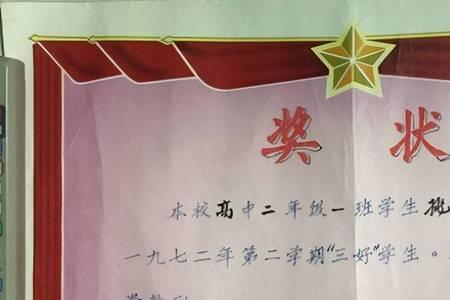 奖 状
本校高中二年级一班学生
一九七二年第二学期"三好"学生。